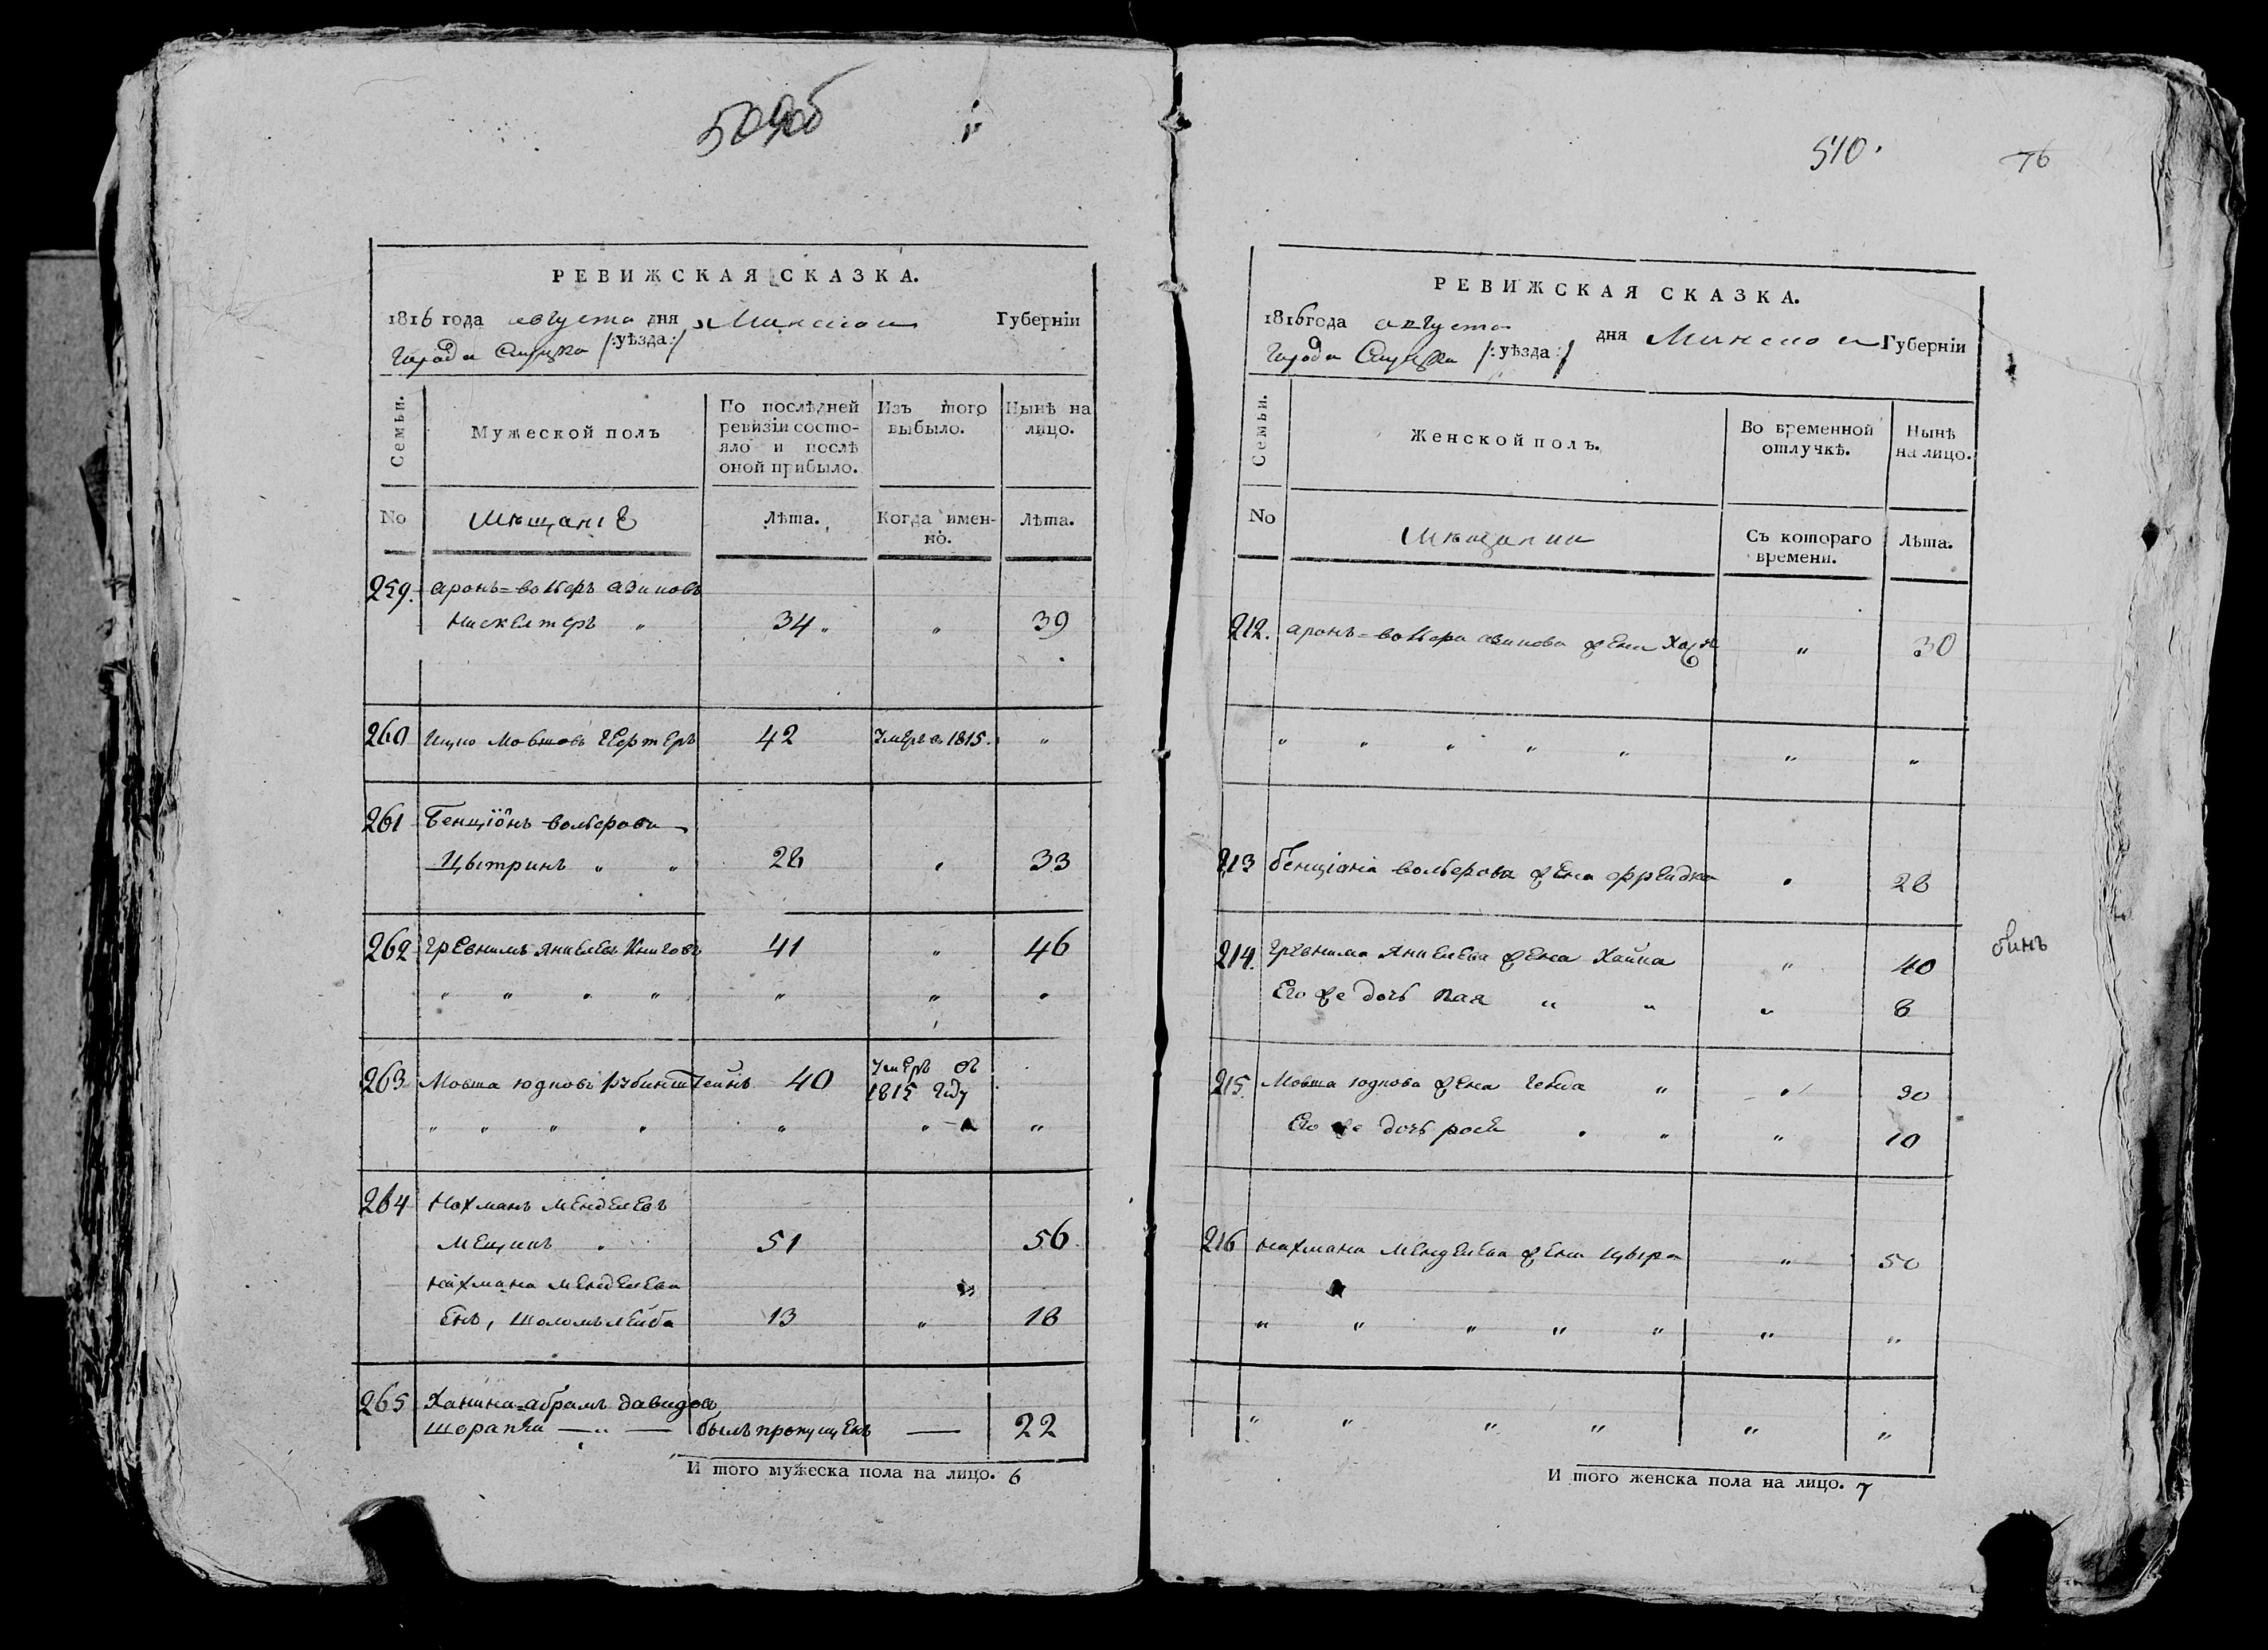 509об
РЕВИЖСКАЯ СКАЗКА.
1816 года августа дня Минской Губерніи
Города Слуцка /:уѣзда:/
Семьи.
Мужеской полъ
По послѣдней ревизіи состо-
яло и послѣ
оной прибыло.
Изъ того
выбыло.
Нынѣ на
лицо.
No
Мѣщаніе
Лѣта.
Когда имен-
но.
Лѣта.
259. Аронъ=Вольфъ
34 „ 39
260 Ицко Мовшовъ 42 Умеръ в 1815. „
261 Бенціонъ Вольфовъ
Цытринъ „ „ 28 „ 33
262 Янкелевъ 41 „ 46
„ „ „ „ „ „ „
263 Мовша Юдковъ Рубинштейнъ 40 Умеръ въ
1815 году
„ „ „ „ „ „ „
264 Нохманъ Менделевъ
51 56
Нахмана Менделева
Снъ, Шоломъ Лейба 13 „ 18
265 Ханина=Абрамъ Давидов
былъ пропущенъ — 22
И того мужеска пола на лицо. 6
510.
76
РЕВИЖСКАЯ СКАЗКА.
1816 года августа дня Минской Губерніи
Города Слуцка /:уѣзда:/
Семьи.
Женской полъ.
Во временной
отлучкѣ.
Нынѣ
на лицо.
No
Мѣщанки
Съ котораго
времени.
Лѣта.
212. Аронъ=Вольфа жена Хая „ 30
„ „ „ „ „ „ „
213 Бенціона Вольфова жена Фрейдка „ 28
214. Янкелева жена Хайка „ 40
Его же дочь Пая „ „ „ 8
215. Мовша Юдкова жена „ „ 30
Его же дочь „ „ „ 10
216 Нахмана Менделева жена Цыра „ 50
„ „ „ „ „ „ „
„ „ „ „ „ „
И того женска пола на лицо. 7